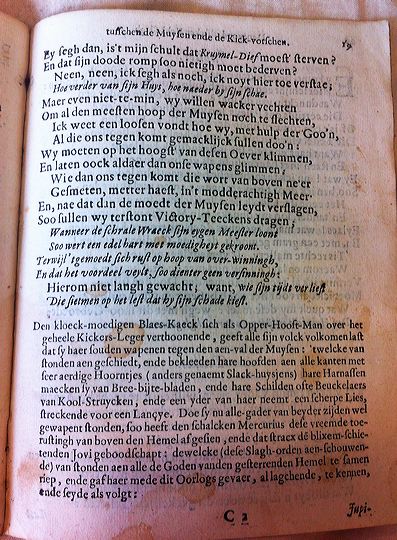 tusschen de Muysen ende de Kick-vorschen. 19
Ey segh dan, is't mijn schult dat Kruymel-Dief moest sterven?
En dat sijn doode romp soo nietigh moet bederven?
Neen, neen, ick segh als noch, ick noyt hier toe verstae;
Hoe verder van sijn Huys, hoe naeder by sijn schae.
Maer even niet-te-min, wy willen wacker vechten
Om al den meesten hoop der Muysen noch te slechten,
Ick weet een loosen vondt hoe wy, met hulp der Goo'n,
Al die ons tegen komt gemacklijck sullen doo'n:
Wy moeten op het hoogst van desen Oever klimmen,
En laten oock aldaer dan onse wapens glimmen;
Wie dan ons tegen komt die wort van boven ne'er
Gesmeten, metter haest, in't modderachtigh Meer.
En, nae dat dan de moedt der Muysen leydt verslagen,
Soo sullen wy terstont Victory-Teeckens dragen;
Wanneer de schrale Wraeck sijn eygen Meester loont
Soo wert een edel hart met moedigheyt gekroont.
Terwijl 't gemoedt sich rust op hoop van over-winningh,
En dat het voordeel veylt, soo dienter geen versinningh:
Hierom niet langh gewacht; want, wie sijn tijdt verliest
Die sietmen op het lest dat hy sijn schade kiest.
Den kloeck-moedigen Blaes-Kaeck sich als Opper-Hooft-Man over het
geheele Kickers-Leger verthoonende, geeft alle sijn volck volkomen last
dat sy haer souden wapenen tegen den aen-val der Muysen: 'twelcke van
stonden aen geschiedt, ende bekleeden hare hoofden aen alle kanten met
seer aerdige Hoorntjes (anders genaemt Slack-huysjens) hare Harnassen
maecken sy van Bree-bijte-bladen, ende hare Schilden ofte Beuckelaers
van Kool-Struycken, ende een yder van haer neemt een scherpe Lies,
streckende voor een Lançye. Doe sy nu alle-gader van beyder zijden wel
gewapent stonden, soo heeft den schalcken Mercurius dese vreemde toe-
rustingh van boven den Hemel afgesien, ende dat stracx dē blixem-schie-
tenden Jovi geboodschapt: dewelcke (dese Slagh-orden aen-schouwen-
de) van stonden aen alle de Goden vanden gesterrenden Hemel te samen
riep, ende gaf haer mede dit Oorlogs gevaer, al lagchende, te kennen,
ende seyde als volgt:
C 2 Jupi-